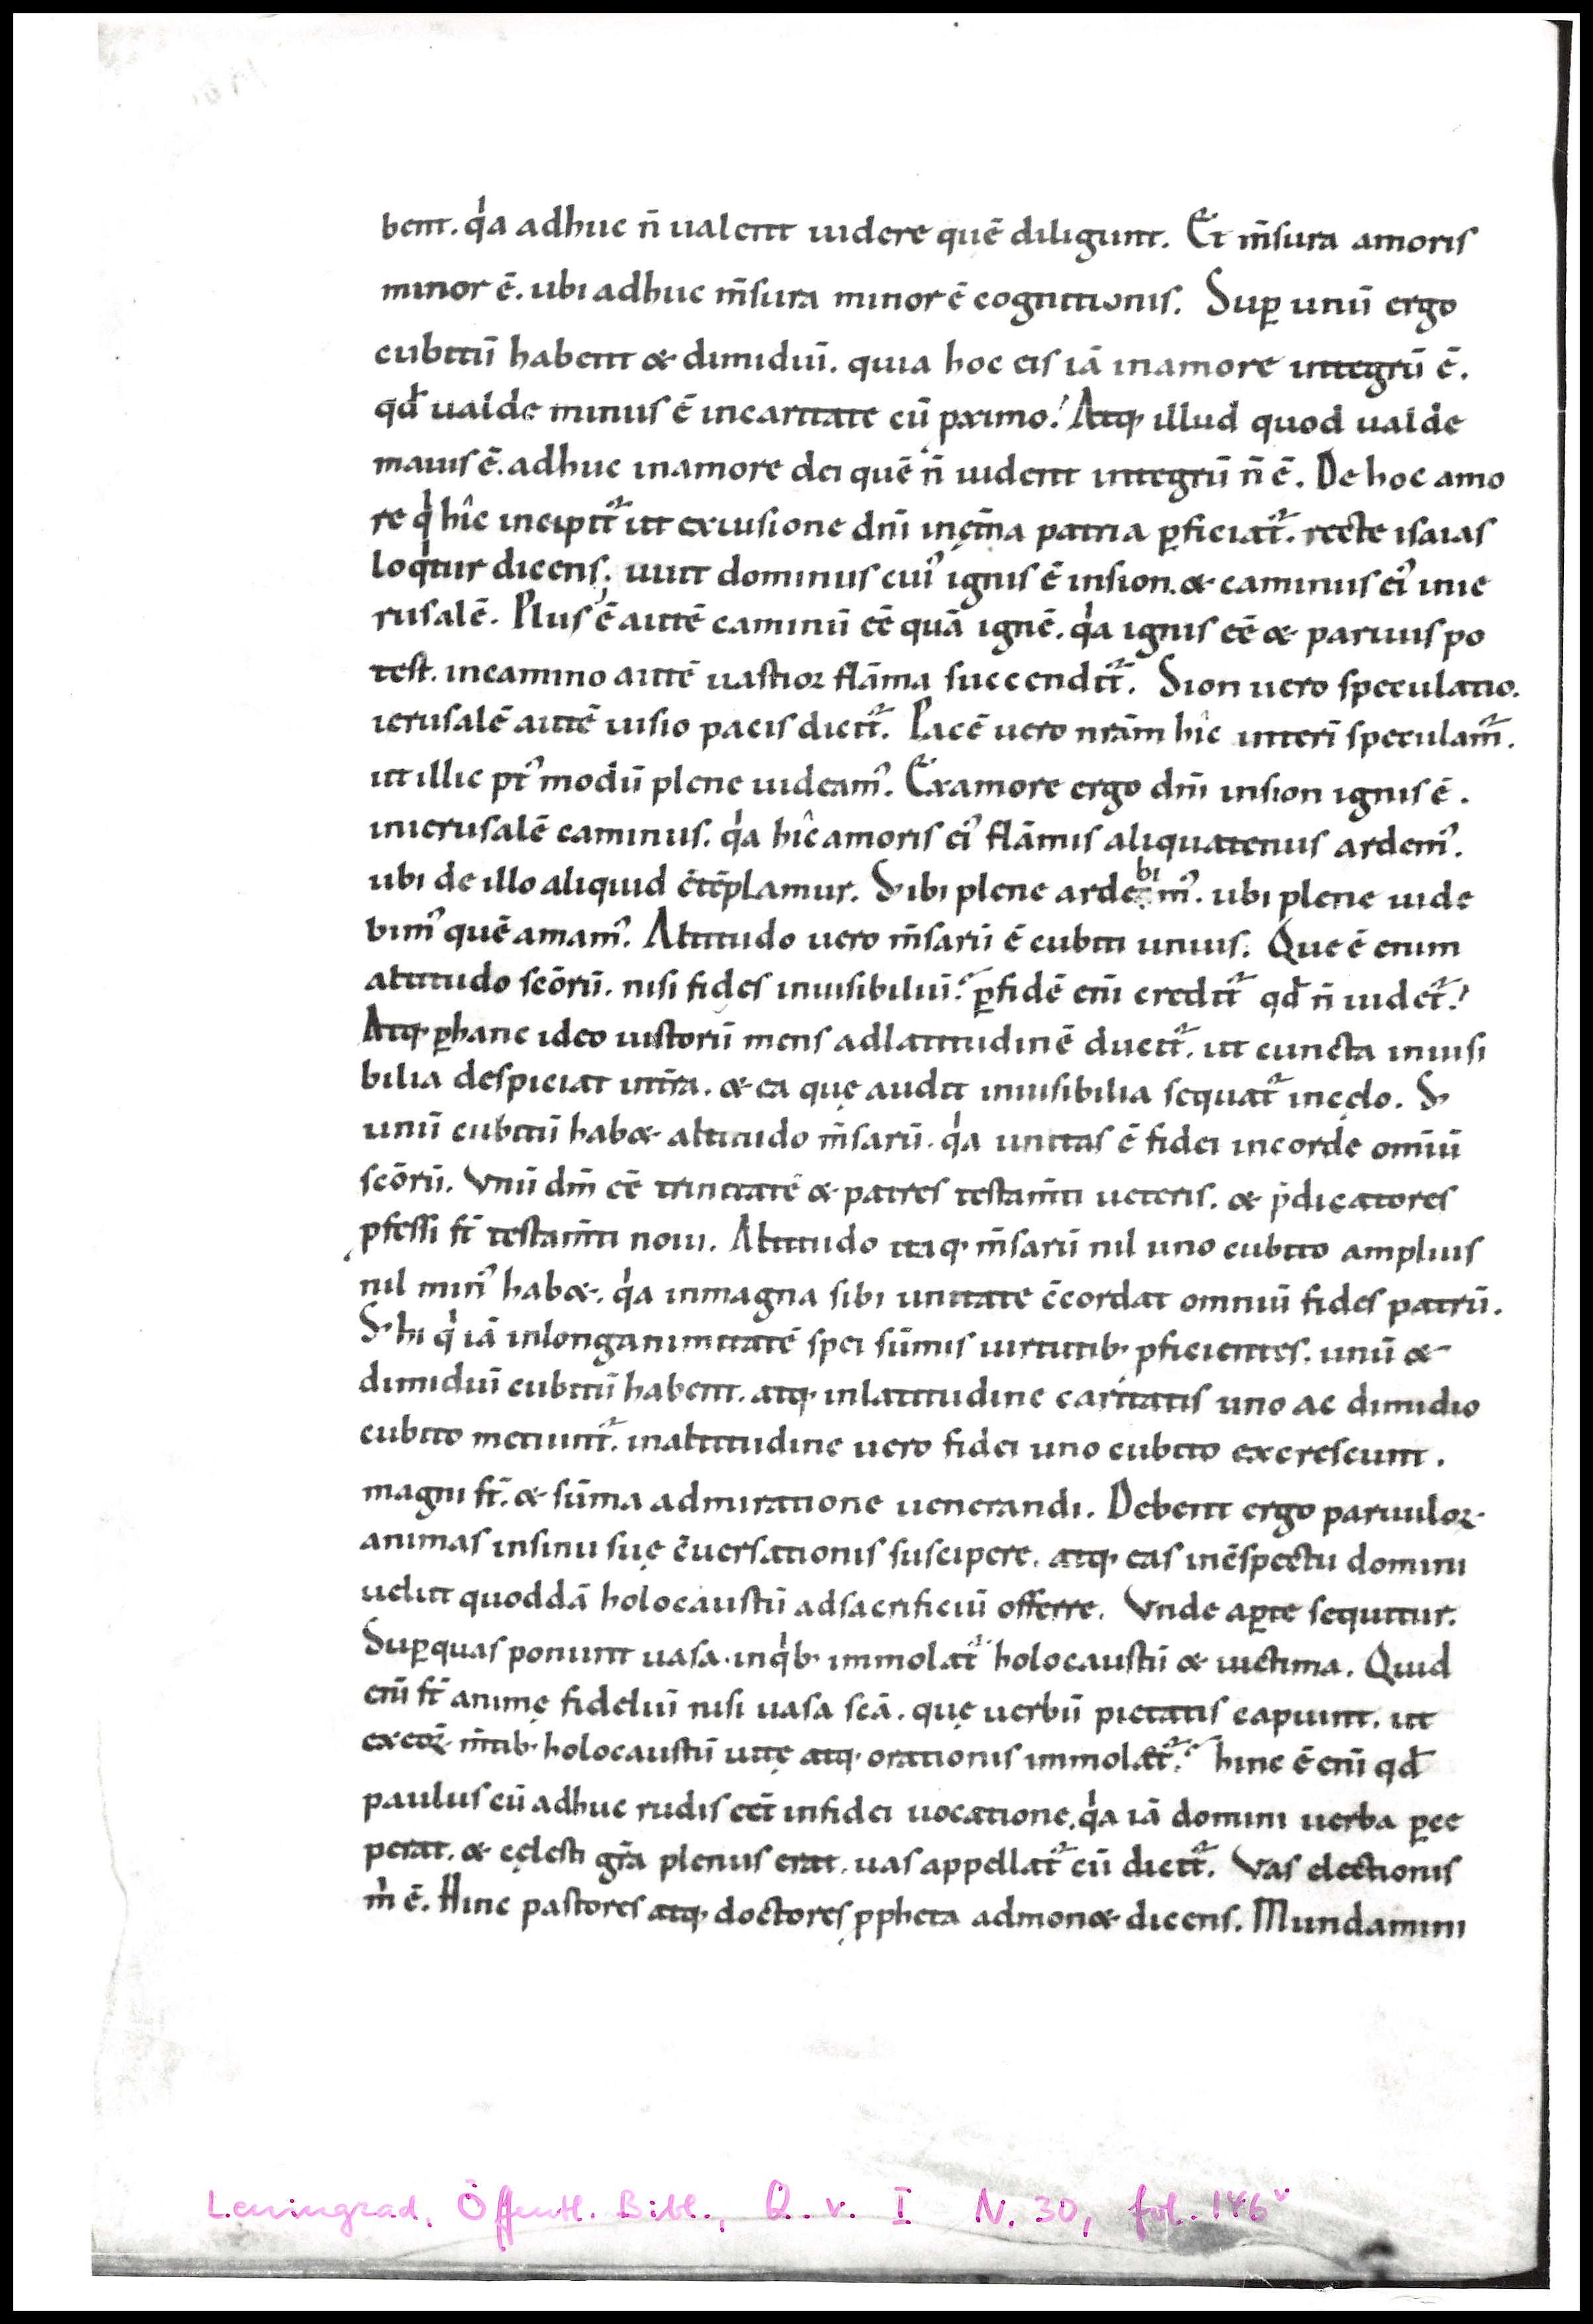 bent. qͥa adhuc n̄ ualent uidere quē diligunt. Et m̄sura amoris
minor ē. ubi adhuc m̄sura minor ē cognitionis. Suꝑ unū ergo
cubitū habent & dimidiū. quia hoc eis iā inamore integrū ē.
qd̄ ualde minus ē incaritate cū pximo. Atq; illud quod ualde
maius ē. adhuc inamore dei quē n̄ uident integrū n̄ ē. De hoc amo
re qͥ hîc incipit᷑ ut exuisione dn̄i incęna patria ꝑficiat᷑. recte isaias
loqͥtur dicens; uiuit dominus cui᾿ ignis ē insion. & caminus ei᾿ inie
rusalē. Plus ē autē caminū eē quā ignē. qͥa ignis eē & paruus po
test. incamino autē uastior flāma succendit᷑. Sion uero speculatio.
ierusalē autē uisio pacis dicit᷑. Pacē uero nr̄am hîc interī speculam᷑.
ut illic pt᾿modū plene uideam᾿. Examore ergo dn̄i insion ignis ē.
inierusalē caminus. qͥa hîc amoris ei᾿ flāmis aliquatenus ardem᾿.
ubi de illo aliquid c̄tēplamur. S; ibi plene ardebim᾿. ubi plene uide
bim᾿ quē amam᾿. Altitudo uero m̄sarū ē cubiti unius. Que ē enim
altitudo sc̄orū. nisi fides inuisibiliū? ꝑfidē eni̅ credit᷑ qd̄ n̄ uidet᷑.
Atq; ꝑhanc ideo iustorū mens adlatitudinē ducit᷑. ut cuncta inuisi
bilia despiciat intra. & ea quę audit inuisibilia sequat᷑ incęlo. S;
unū cubitū hab& altitudo m̄sarū. qͥa unitas ē fidei incorde omniū
sc̄orū. Vnū dm̄ eē trinitatē & patres testam̄ti ueteris. & p̄dicatores
pfessi st̄ testam̄ti noui. Altitudo itaq; m̄sarū nil uno cubito amplius
nil min᾿ hab&. qͥa inmagna sibi unitate c̄cordat omniū fides patrū.
S; hi qͥ iā inlonganimitatē spei sūmis uirtutib; pficientes. unū &
dimidiū cubitū habent. atq; inlatitudine caritatis uno ac dimidio
cubito metiunt᷑. inaltitudine uero fidei uno cubito excrescunt.
magni st̄. & sūma admiratione uenerandi. Debent ergo paruuloꝝ
animas insinu suę c̄uersationis suscipere. atq; eas inc̄spectu domini
uelut quoddā holocaustū adsacrificiū offerre. Vnde aꝑte sequitur.
Suꝑquas ponunt uasa. inqͥb; immolat᷑ holocaustū & uictima. Quid
eni̅ st̄ animę fideliū nisi uasa sc̄a. quę uerbū pietatis capiunt. ut
exeoꝝ m̄tib; holocaustū uitę atq; orationis immolet᷑? hinc ē eni̅ qd̄
paulus cū adhuc rudis eēt infidei uocatione. qͥa iā domini uerba ꝑce
perat. & cęlesti gr̄a plenus erat. uas appellat᷑ cū dicit᷑. Vas electionis
mͥ ē. Hinc pastores atq; doctores ppheta admon& dicens. Mundamini
Leningrad, Öffentl. Bibl., Q. v. I N. 30, fol. 146ᵛ